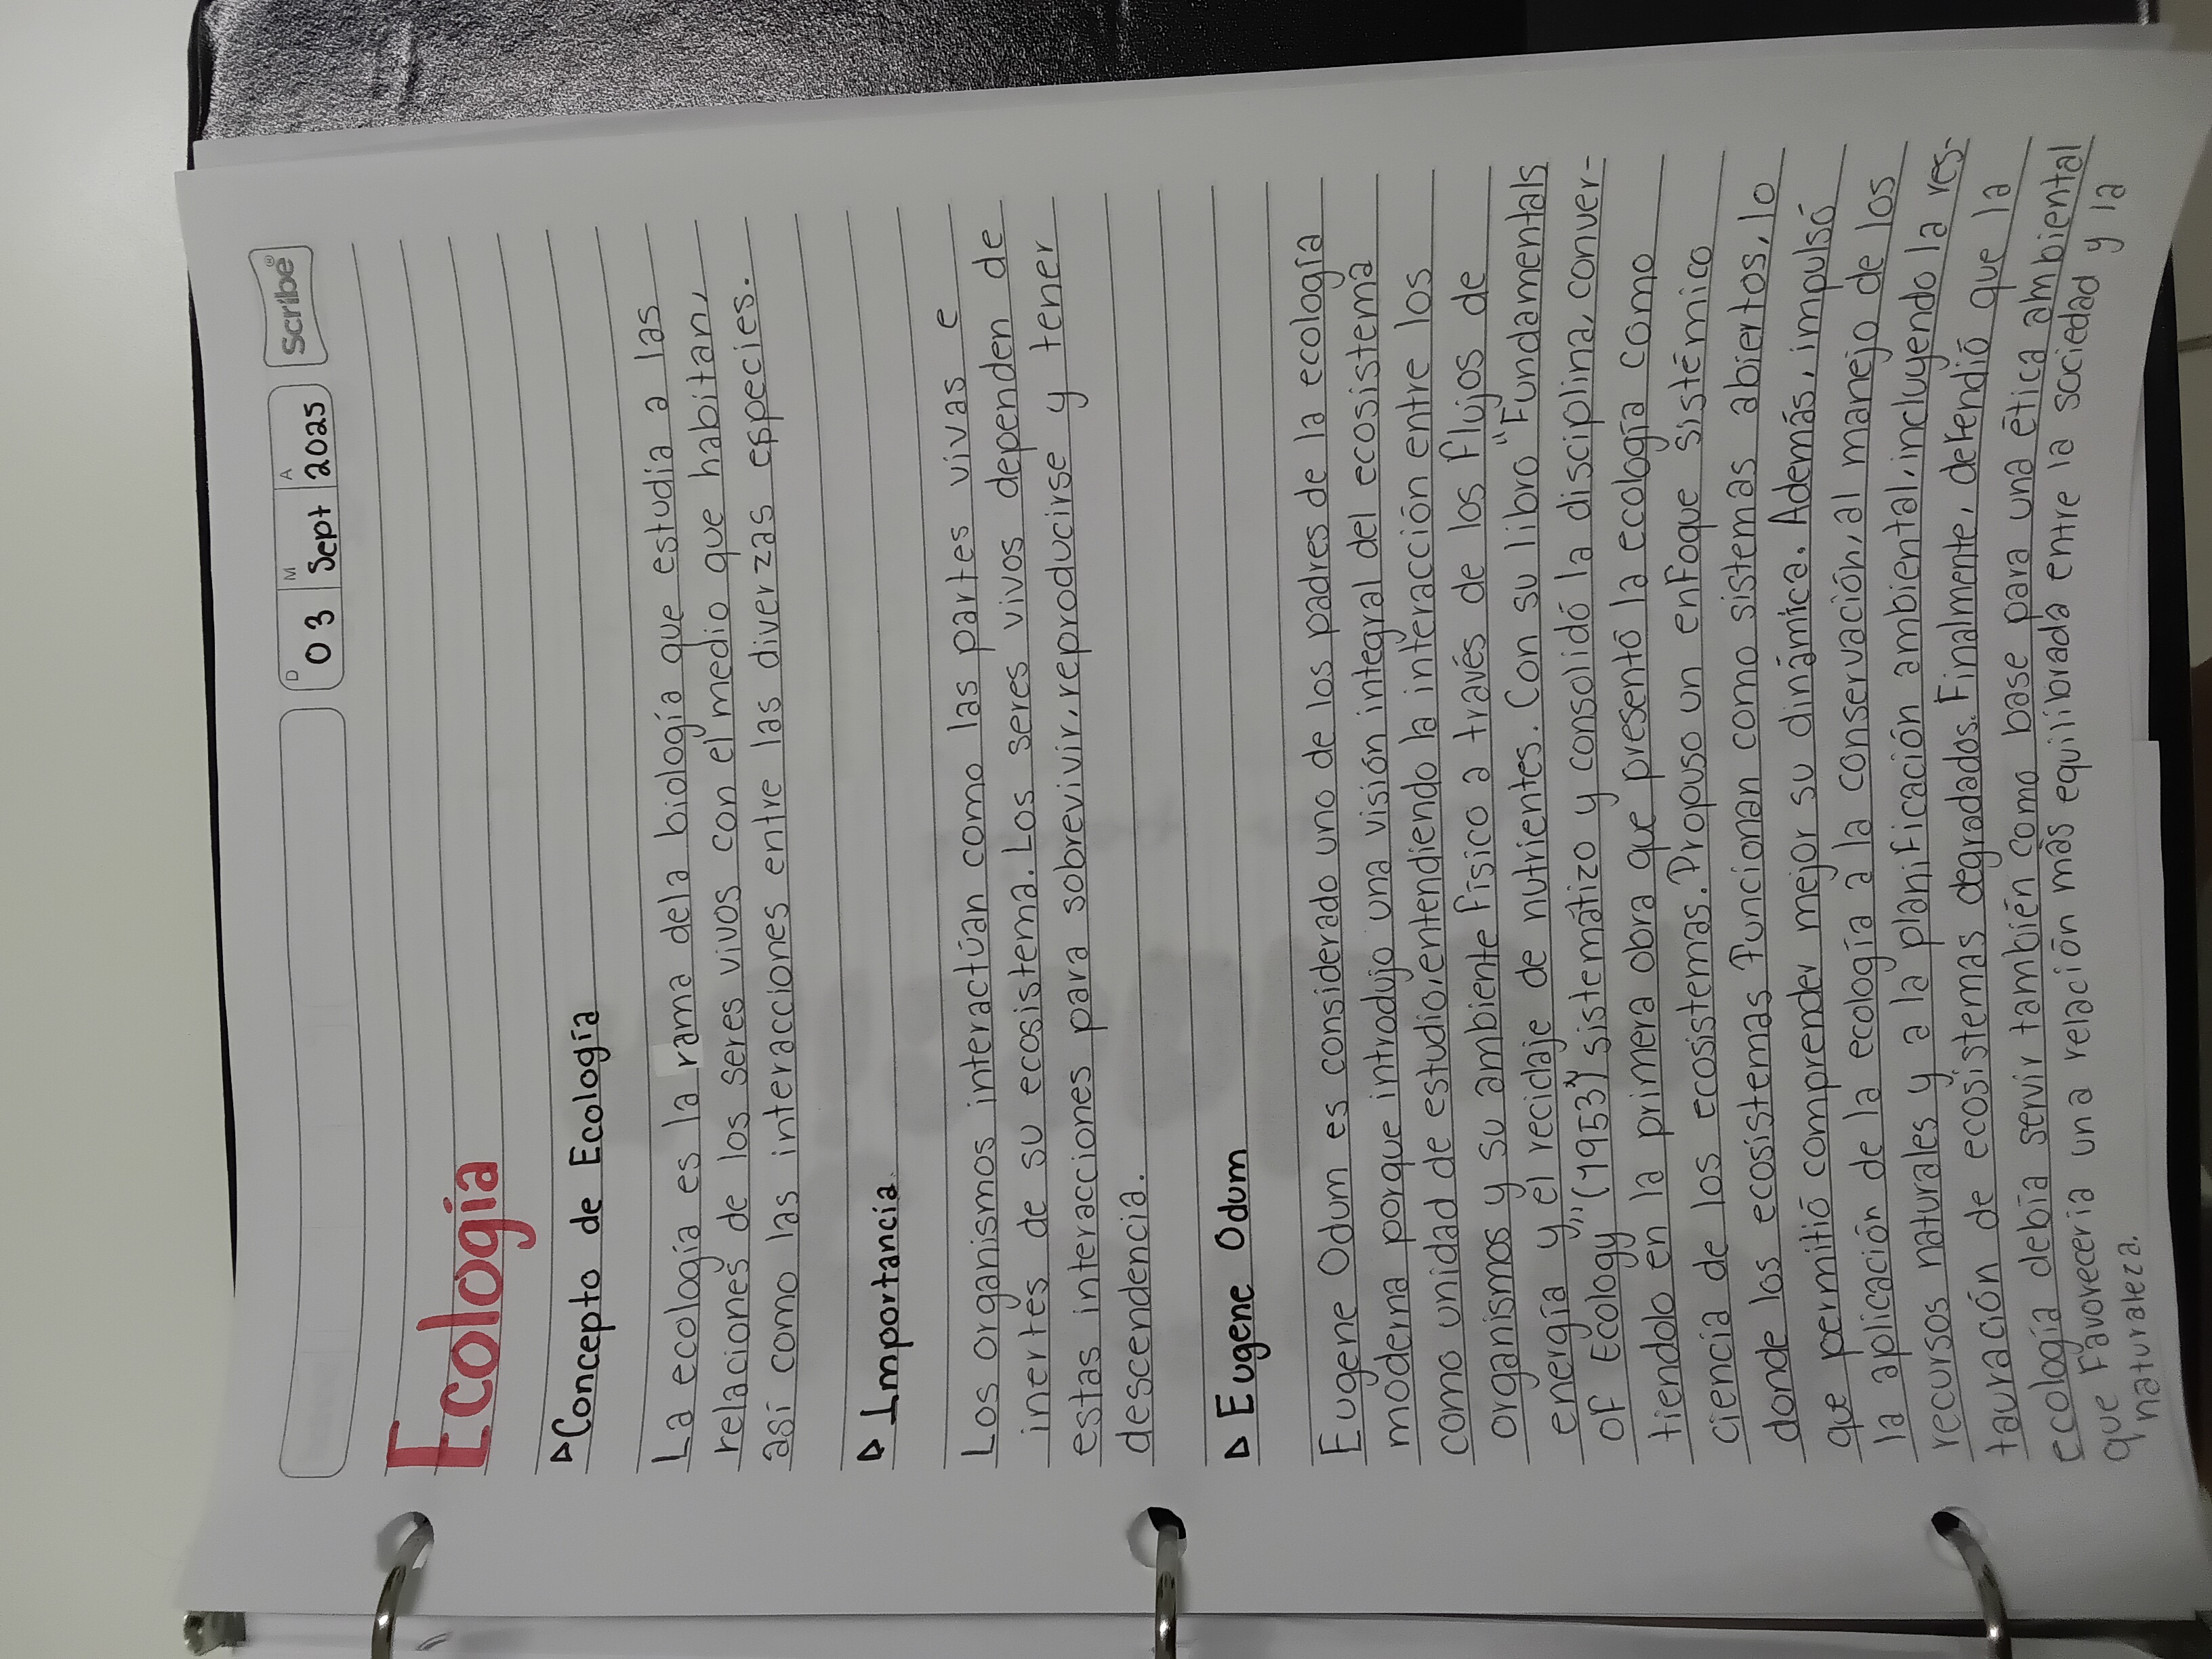 D M A
03 Sept 2025
Scribe®
Ecología
▷Concepto de Ecología
La ecología es la rama dela biología que estudia a las
relaciones de los seres vivos con el medio que habitan,
así como las interacciones entre las diverzas especies.
▷ Importancia
Los organismos interactúan como las partes vivas e
inertes de su ecosistema. Los seres vivos dependen de
estas interacciones para sobrevivir, reproducirse y tener
descendencia.
▷ Eugene Odum
Eugene Odum es considerado uno de los padres de la ecología
moderna porque introdujo una visión integral del ecosistema
como unidad de estudio, entendiendo la interacción entre los
organismos y su ambiente físico a través de los flujos de
energía y el reciclaje de nutrientes. Con su libro "Fundamentals
of Ecology" (1953) sistemátizo y consolidó la disciplina, conver-
tiendolo en la primera obra que presentó la ecología como
ciencia de los ecosistemas. Propuso un enfoque sistémico
donde los ecosistemas funcionan como sistemas abiertos, lo
que permitió comprender mejor su dinámica. Además, impulsó
la aplicación de la ecología a la conservación, al manejo de los
recursos naturales y a la planificación ambiental, incluyendo la res-
tauración de ecosistemas degradados. Finalmente, defendió que la
ecología debía servir también como base para una ética ambiental
que favorecería una relación más equilibrada entre la sociedad y la
naturaleza.